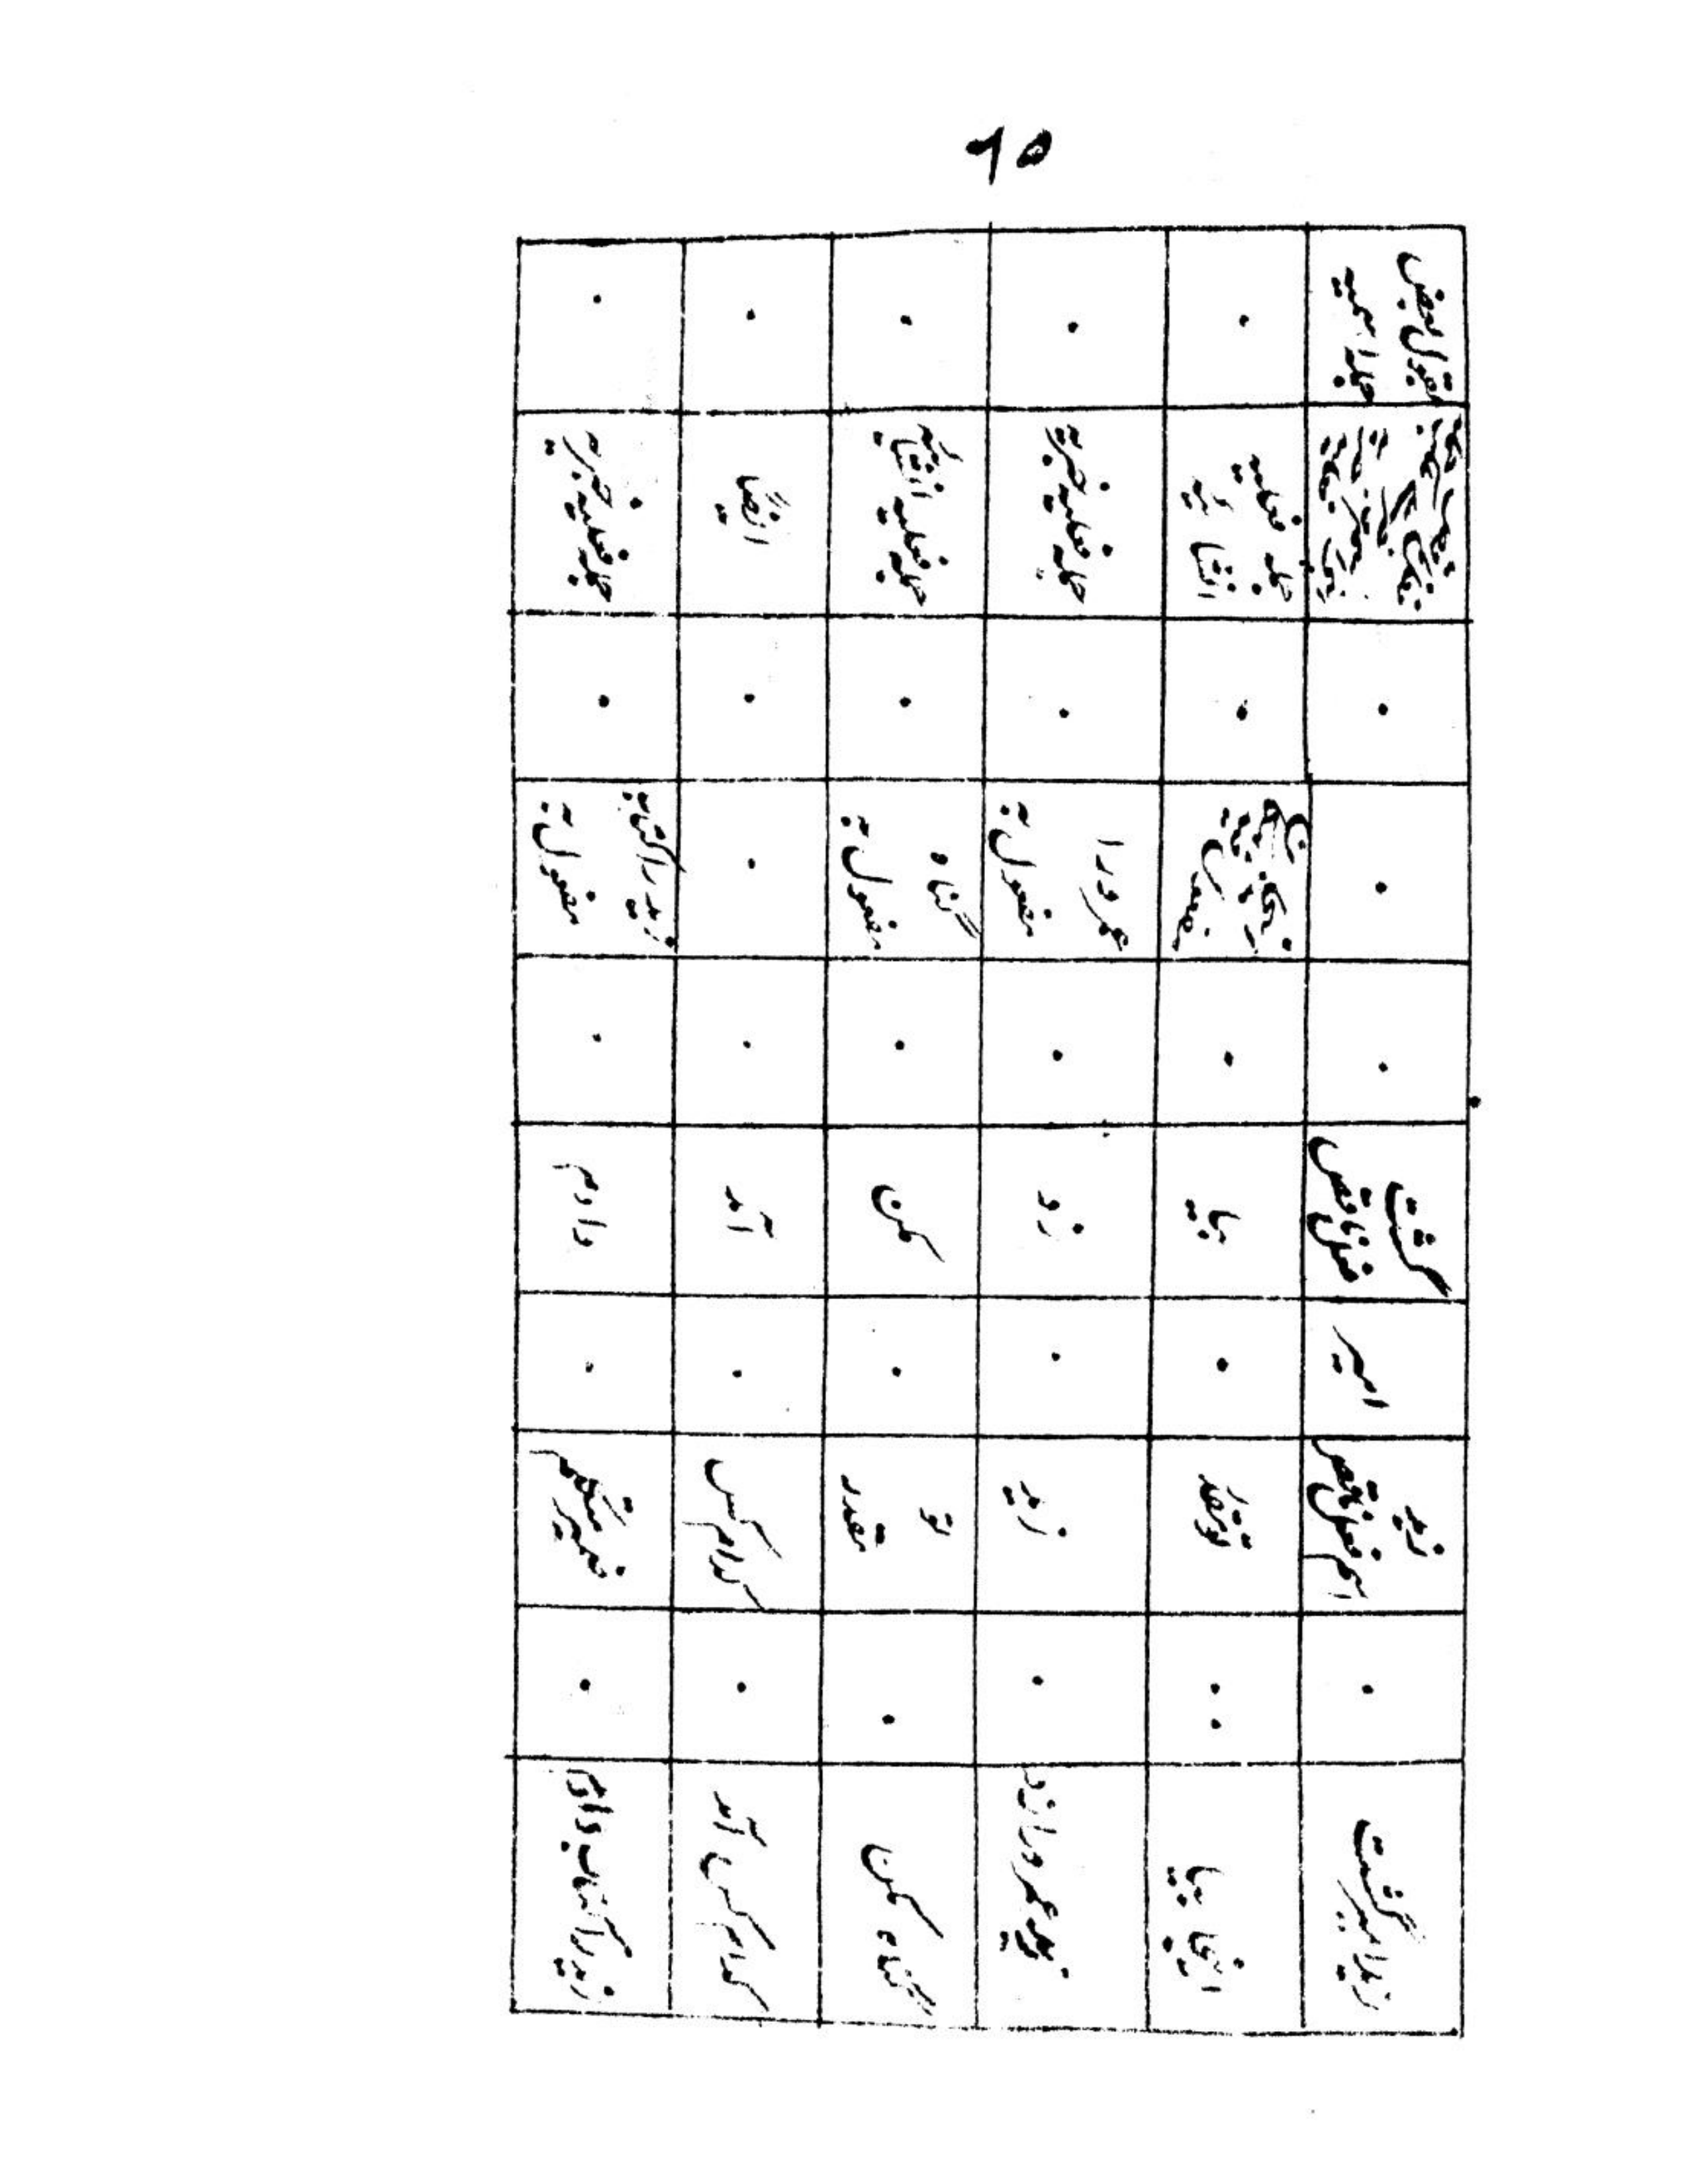 ۹۵
زید امیر گشت
زید
اسم فعل ناقص
امیر
گشت
فعل ناقص
بقول بعض
جمله اسمیه
اینجا بیا
تو مقدر
بیا
جمله فعلیه
انشائیه
زید عمرو را زد
زید
زد
عمرو را
مفعول به
جمله فعلیه خبریه
گناه مکن
تو
مقدر
مکن
گناه
مفعول به
جمله فعلیه انشائیه
کدام کس آمد
کدام کس
آمد
ایضاً
زید را کتاب دادم
ضمیر متکلم
دادم
زید را
مفعول به
جمله فعلیه خبریه